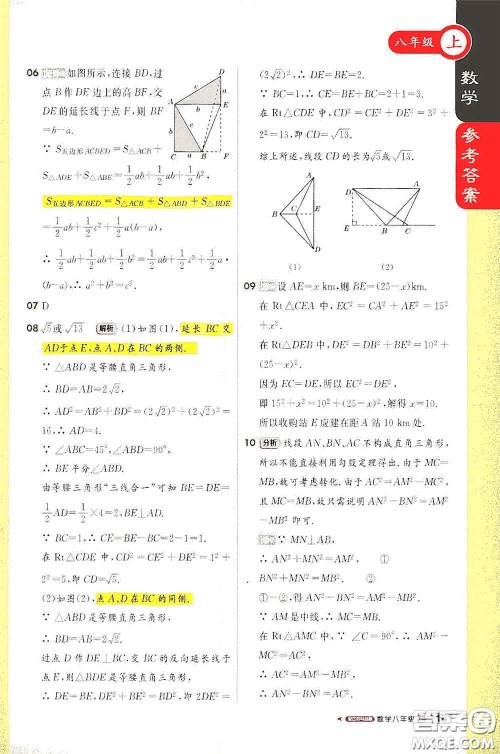 八年级 上
数学
参考答案
06 如图所示,连接 BD,过
点 B 作 DE 边上的高 BF,交
DE 的延长线于点 F,则 BF
=b-a.
∵ S五边形ACBED=S△ACB+
S△ABE+S△ADE
=1/2ab+1/2b²+1/2ab,
S五边形ACBED=S△ACB+S△ABD+S△BDE
=1/2ab+1/2c²+1/2a(b-a),
∴ 1/2ab+1/2b²+1/2ab=1/2ab+1/2c²+1/2a(b-
a),∴ a²+b²=c².
07 D
08 √5或√13 解析 (1)如图(1),延长 BC 交
AD于点 E,点 A,D在 BC 的两侧.
∵ △ABD是等腰直角三角形,
∴ AD²=AB²+BD²=(2√2)²+(2√2)²=
16,∴ AD=4.
∵ ∠ABC=45°,∠ABD=90°,
∴ BE平分∠ABD,
由等腰三角形“三线合一”可知BE=
1/2AD=1/2×4=2,BE⊥AD.
∵ BC=1,∴ CE=BE-BC=2-1=1.
在 Rt△CDE 中,CD²=CE²+DE²=1²+
2²=5,即 CD=√5.
(2)如图(2),点 A,D在 BC的同侧.
∵ △ABD是等腰直角三角形,
∴ BD=AB=2√2.
过点 D 作 DE⊥BC,交 BC 的反向延长线于
点 E,则△BDE 是等腰直角三角形,
∴ DE²+BE²=DE²+DE²=2DE²=BD²=
(2√2)²=8,∴ DE=BE=2.
∵ BC=1,∴ CE=BE+BC=2+1=3.
在 Rt△CDE 中,CD²=CE²+DE²=3²+
2²=13,即 CD=√13.
综上所述,线段 CD的长为√5或√13.
(1) (2)
09 设 AE=x km,则 BE=(25-x)km.
在 Rt△CEA 中,根据勾股定理有 CE²=15²+
x².
在 Rt△EBD 中,根据勾股定理有 ED²=10²
+(25-x)².
因为 EC=DE,所以 EC²=DE²,
即 15²+x²=10²+(25-x)²,解得 x=10.
所以收购站 E 应建在距 A 站 10 km 处.
10 分析 线段 AN,BN,AC 不构成直角三角形,
所以不能直接利用勾股定理得出.由于 MC=
MB,故可考虑转化.由于 AM²-MC²=AC²,
MC=MB,故结论可证.
∵ MN⊥AB,
∴ AN²+MN²=AM². ①
BN²+MN²=MB². ②
①-②,得 AN²-BN²=AM²-MB².
∵ AM是中线,∴ MC=MB.
又∵ ∠C=90°,∴ AM²-MC²=AC²,
∴ AN²-BN²=AC².
数学八年级